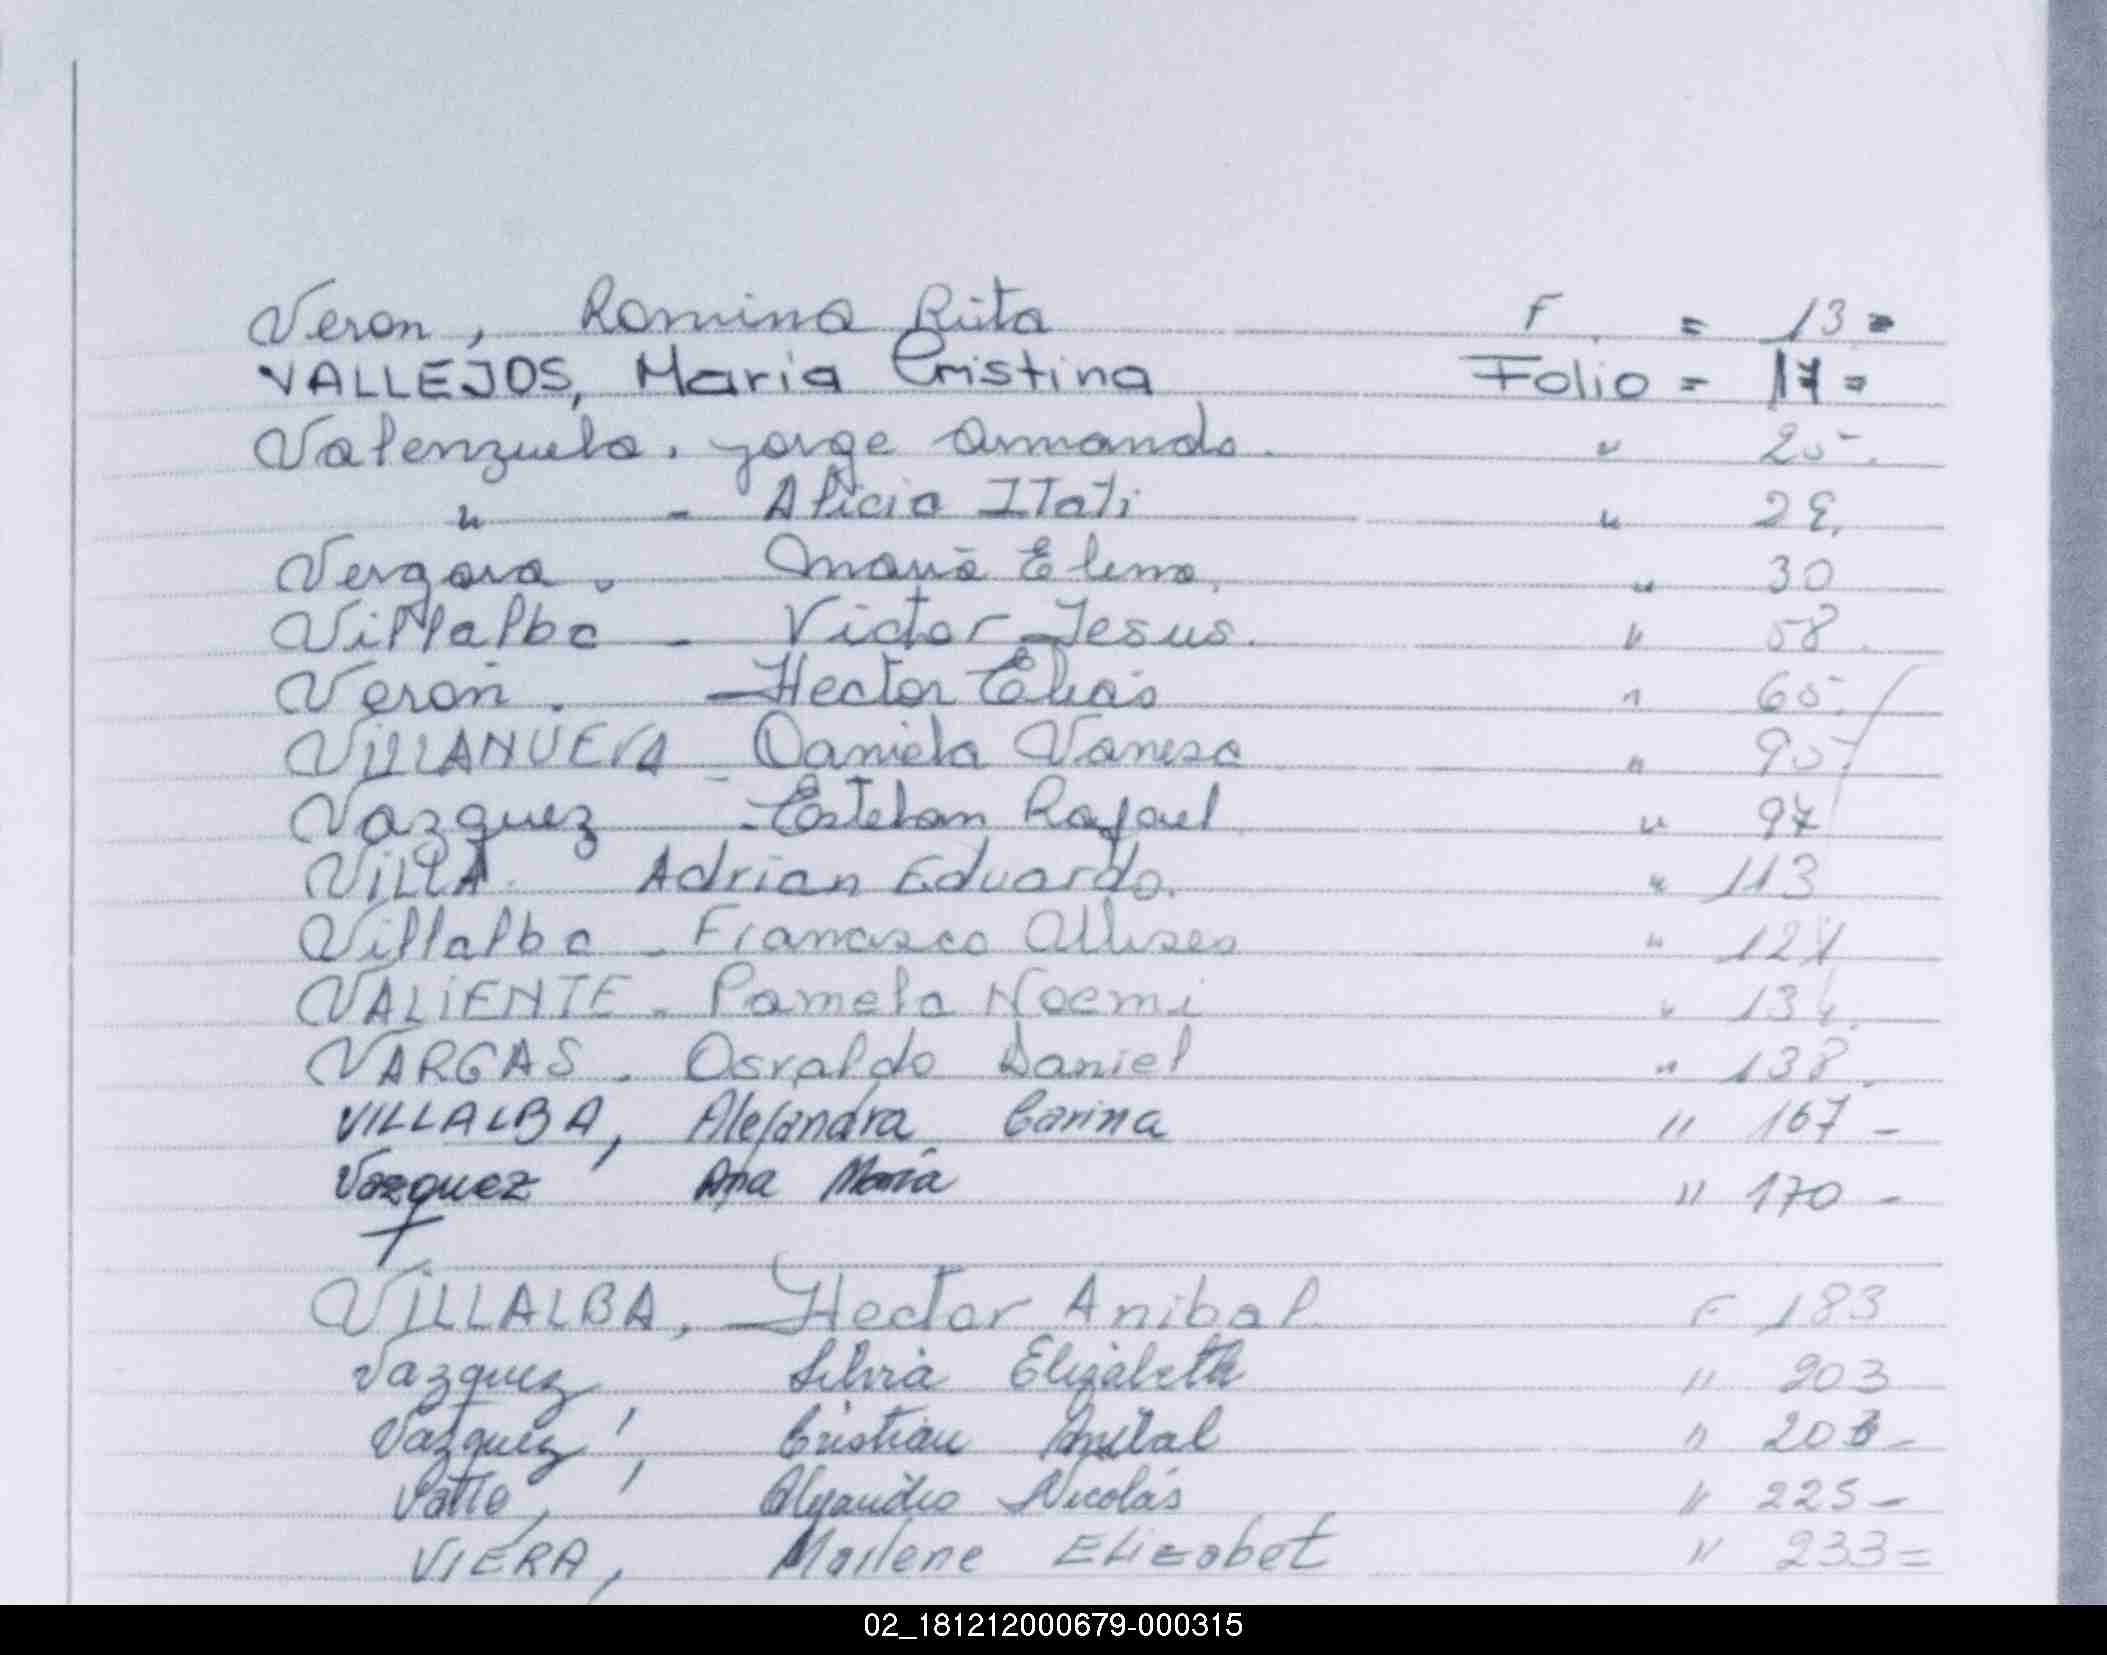 Veron, Romina Rita F = 13 =
VALLEJOS, Maria Cristina Folio = 17 =
Valenzuela. Jorge Armando. " 25-.
" - Alicia ITati " 28.
Vergara. Maria Elena. " 30
Villalba - Victor Jesus. " 58.
Veron. Hector Elias " 65.
VILLANUEVA - Daniela Vanesa " 95
Vazquez - Esteban Rafael " 97
VILLA. Adrian Eduardo. " 113
Villalba - Francisco Ulises " 127
VALIENTE - Pamela Noemi " 134.
VARGAS. Osvaldo Daniel " 138.
VILLALBA, Alejandra Carina " 167 -
Vazquez Ana María " 170 -
VILLALBA, Hector Anibal F 183
Vazquez, Silvia Elizabeth " 203
Vazquez, Cristian Anibal " 203 -
Valle, Alejandro Nicolás " 225 -
VIERA, Marlene Elizabet " 233 =
02_181212000679-000315